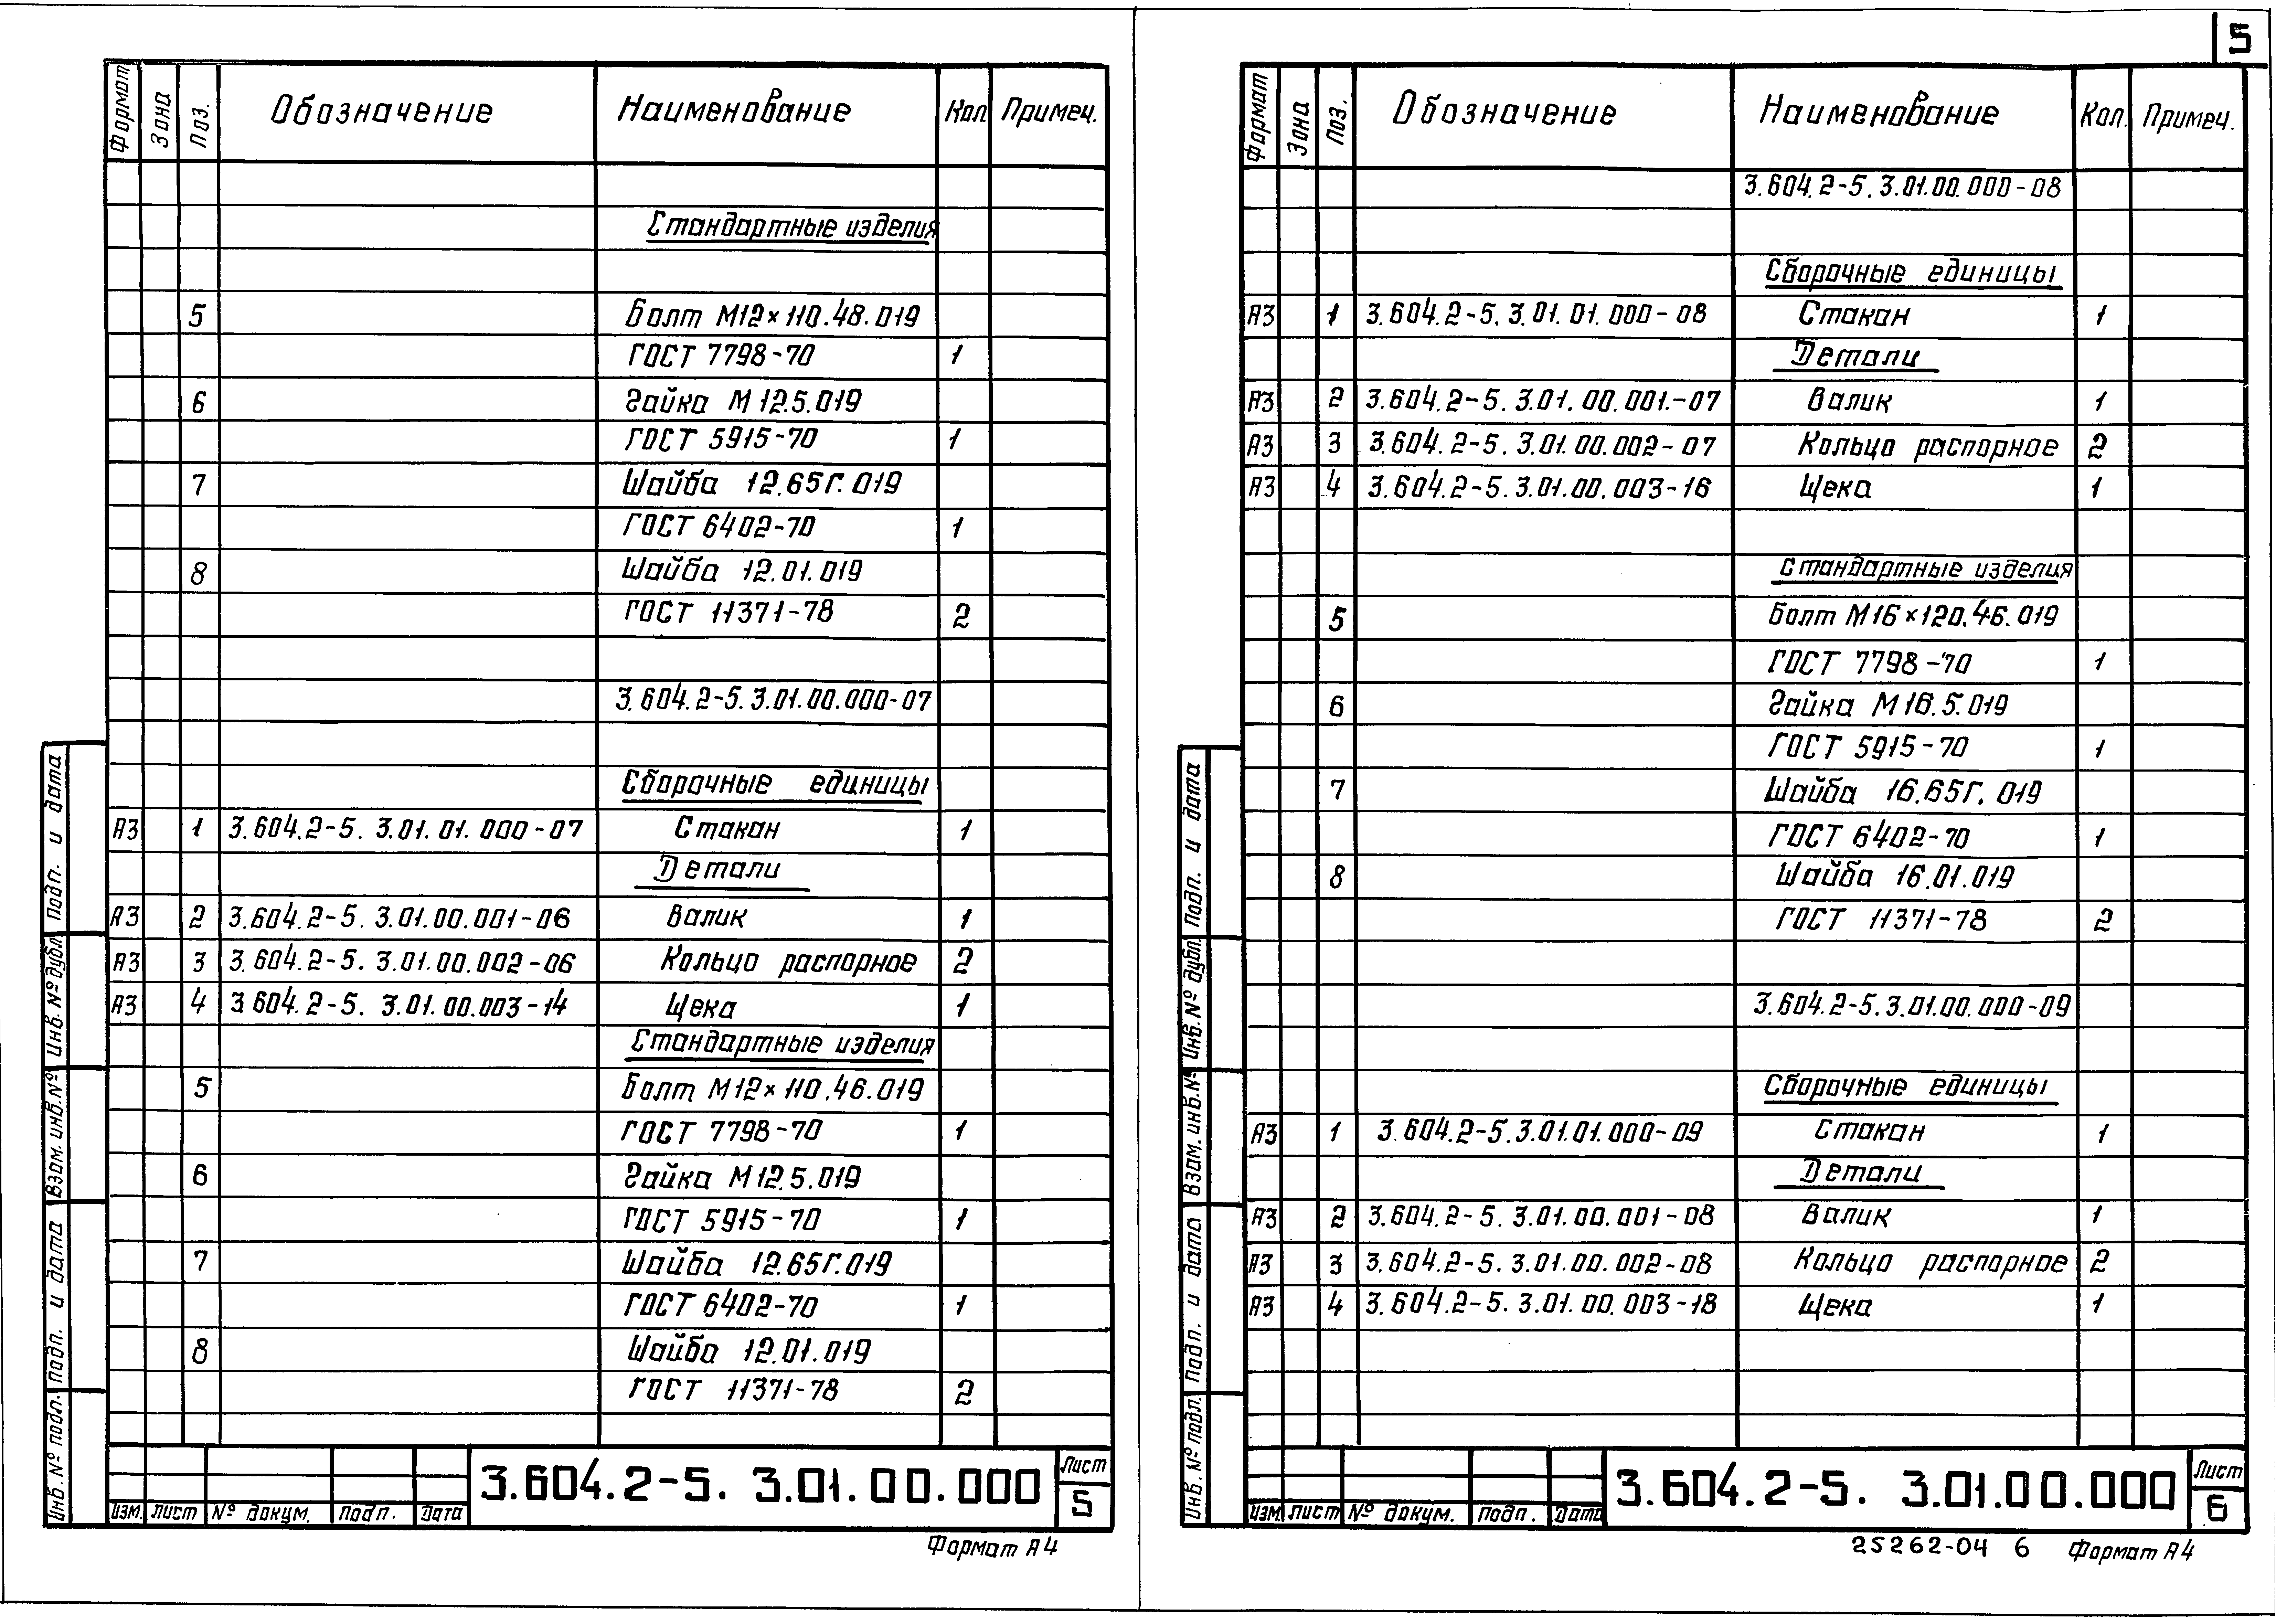 5
Формат Зона Поз. Обозначение Наименование Кол Примеч.
Стандартные изделия
5 Болт М12×110.48.019
ГОСТ 7798-70 1
6 Гайка М12.5.019
ГОСТ 5915-70 1
7 Шайба 12.65Г.019
ГОСТ 6402-70 1
8 Шайба 12.01.019
ГОСТ 11371-78 2
3.604.2-5.3.01.00.000-07
Сборочные единицы
А3 1 3.604.2-5.3.01.01.000-07 Стакан 1
Детали
А3 2 3.604.2-5.3.01.00.001-06 Валик 1
А3 3 3.604.2-5.3.01.00.002-06 Кольцо распорное 2
А3 4 3.604.2-5.3.01.00.003-14 Щека 1
Стандартные изделия
5 Болт М12×110.46.019
ГОСТ 7798-70 1
6 Гайка М12.5.019
ГОСТ 5915-70 1
7 Шайба 12.65Г.019
ГОСТ 6402-70 1
8 Шайба 12.01.019
ГОСТ 11371-78 2
Подп. и дата
Инв. № дубл.
Взам. инв. №
Подп. и дата
Инв. № подл.
Изм. Лист № докум. Подп. Дата
3.604.2-5. 3.01.00.000
Лист
5
Формат А4
Формат Зона Поз. Обозначение Наименование Кол. Примеч.
3.604.2-5.3.01.00.000-08
Сборочные единицы
А3 1 3.604.2-5.3.01.01.000-08 Стакан 1
Детали
А3 2 3.604.2-5.3.01.00.001.-07 Валик 1
А3 3 3.604.2-5.3.01.00.002-07 Кольцо распорное 2
А3 4 3.604.2-5.3.01.00.003-16 Щека 1
Стандартные изделия
5 Болт М16×120.46.019
ГОСТ 7798-70 1
6 Гайка М16.5.019
ГОСТ 5915-70 1
7 Шайба 16.65Г.019
ГОСТ 6402-70 1
8 Шайба 16.01.019
ГОСТ 11371-78 2
3.604.2-5.3.01.00.000-09
Сборочные единицы
А3 1 3.604.2-5.3.01.01.000-09 Стакан 1
Детали
А3 2 3.604.2-5.3.01.00.001-08 Валик 1
А3 3 3.604.2-5.3.01.00.002-08 Кольцо распорное 2
А3 4 3.604.2-5.3.01.00.003-18 Щека 1
Подп. и дата
Инв. № дубл.
Взам. инв. №
Подп. и дата
Инв. № подл.
Изм Лист № докум. Подп. Дата
3.604.2-5. 3.01.00.000
Лист
6
25262-04 6 Формат А4